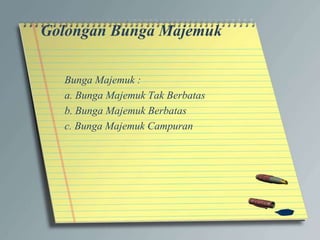 Golongan Bunga Majemuk
Bunga Majemuk :
a. Bunga Majemuk Tak Berbatas
b. Bunga Majemuk Berbatas
c. Bunga Majemuk Campuran